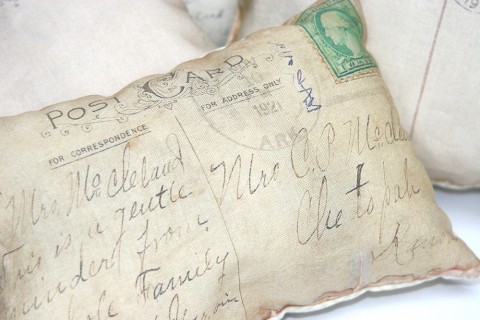 POST CARD
FOR CORRESPONDENCE
FOR ADDRESS ONLY
1921
ARK
Mrs McCleland
This is a gentle
minder from
Family
Mrs C. P. McCle
Chetopah
Kans